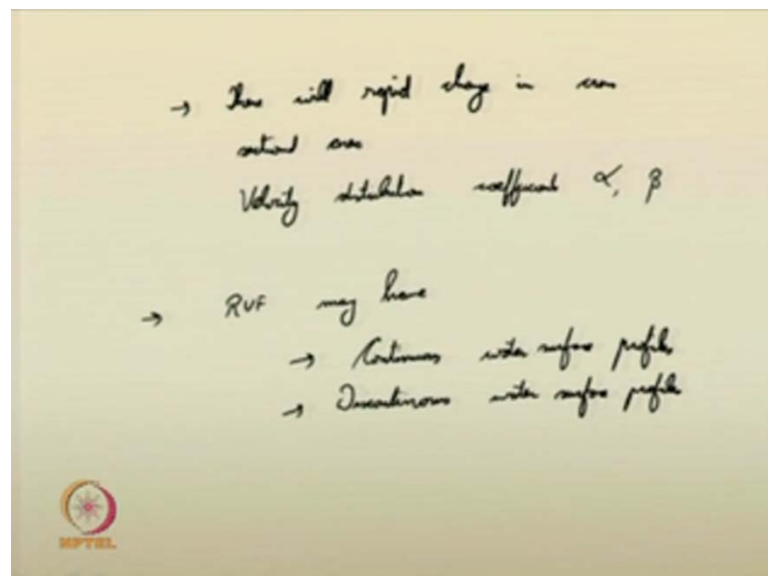 → There will rapid change in cross
sectional area
Velocity distribution coefficients α, β
→ RVF may have
→ Continuous water surface profiles
→ Discontinuous water surface profiles
NPTEL